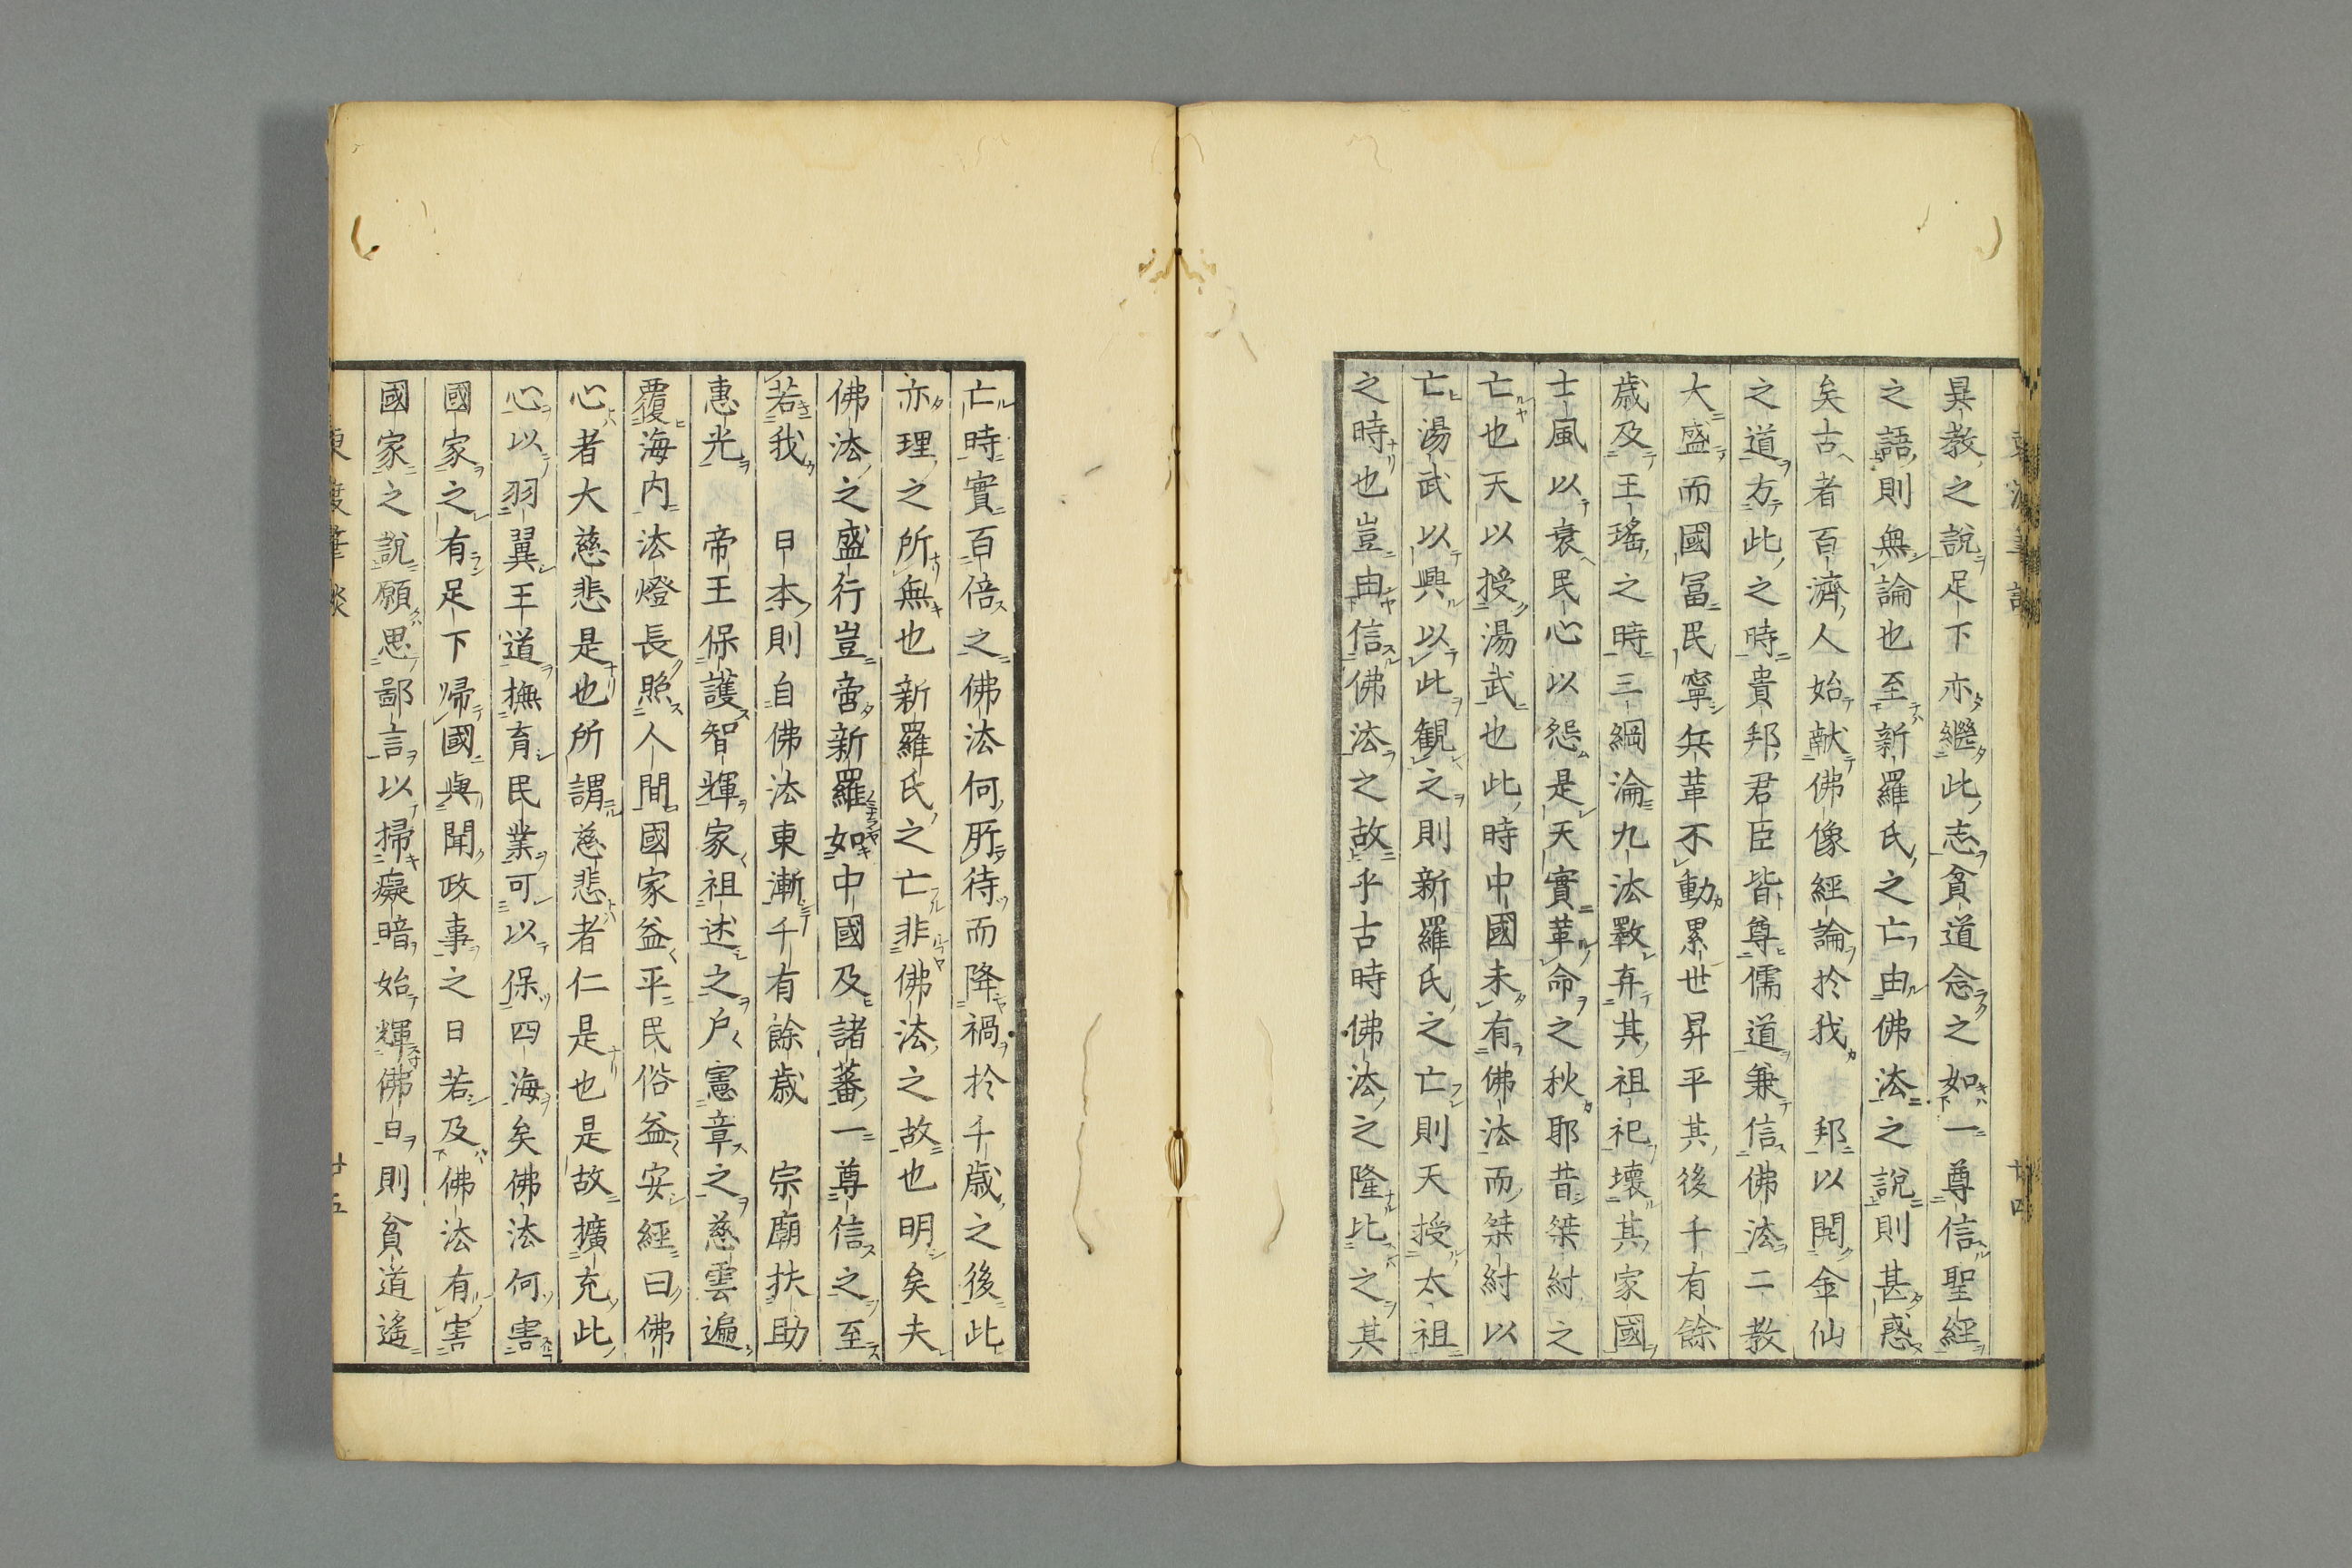 異教之說足下亦繼此志貧道念之如一尊信聖經
之語則無論也至新羅氏之亡由佛法之說則甚惑
矣古者百濟人始獻佛像經論於我 邦以開金仙
之道方此之時貴邦君臣皆尊儒道兼信佛法二教
大盛而國冨民寧兵革不動累世昇平其後千有餘
歳及王瑤之時三綱淪九法斁弃其祖祀壞其家國
士風以衰民心以怨是天實革命之秋耶昔桀紂之
亡也天以授湯武也此時中國未有佛法而桀紂以
亡湯武以興以此觀之則新羅氏之亡則天授太祖
之時也豈由信佛法之故乎古時佛法之隆比之其
亡時實百倍之佛法何所待而降禍於千歳之後此
亦理之所無也新羅氏之亡非佛法之故也明矣夫
佛法之盛行豈啻新羅如中國及諸蕃一尊信之至
若我 日本則自佛法東漸千有餘歳 宗廟扶助
惠光 帝王保護智輝家祖述之戶憲章之慈雲遍
覆海内法燈長照人間國家益平民俗益安經曰佛
心者大慈悲是也所謂慈悲者仁是也是故擴充此
心以羽翼王道撫育民業可以保四海矣佛法何害
國家之有足下歸國與聞政事之日若及佛法有害
國家之說願思鄙言以掃癡暗始輝佛日則貧道遙
廿五